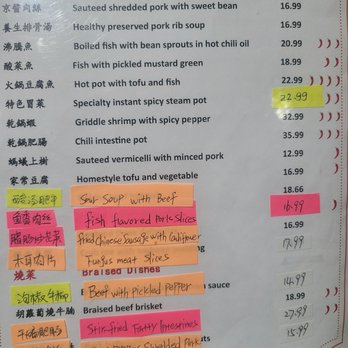 京醬肉絲 Sauteed shredded pork with sweet bean 16.99
養生排骨湯 Healthy preserved pork rib soup 16.99
沸騰魚 Boiled fish with bean sprouts in hot chili oil 20.99
酸菜魚 Fish with pickled mustard green 18.99
火鍋豆腐魚 Hot pot with tofu and fish 22.99
特色冒菜 Specialty instant spicy steam pot 22.99
乾鍋蝦 Griddle shrimp with spicy pepper 32.99
乾鍋肥腸 Chili intestine pot 35.99
螞蟻上樹 Sauteed vermicelli with minced pork 12.99
家常豆腐 Homestyle tofu and vegetable 16.99
Sour Soup with Beef 18.66
魚香肉丝 fish flavored Pork Slices 16.99
fried Chinese Sausage with Cauliflower 16.99
木耳肉片 Fungus meat slices 17.99
燒菜 Braised Dishes
sauce 14.99
泡椒牛柳 Beef with Pickled Pepper 18.99
胡蘿蔔燒牛腩 Braised beef brisket 27.99
Stir-fried Fatty Intestines 15.99
Shredded Pork